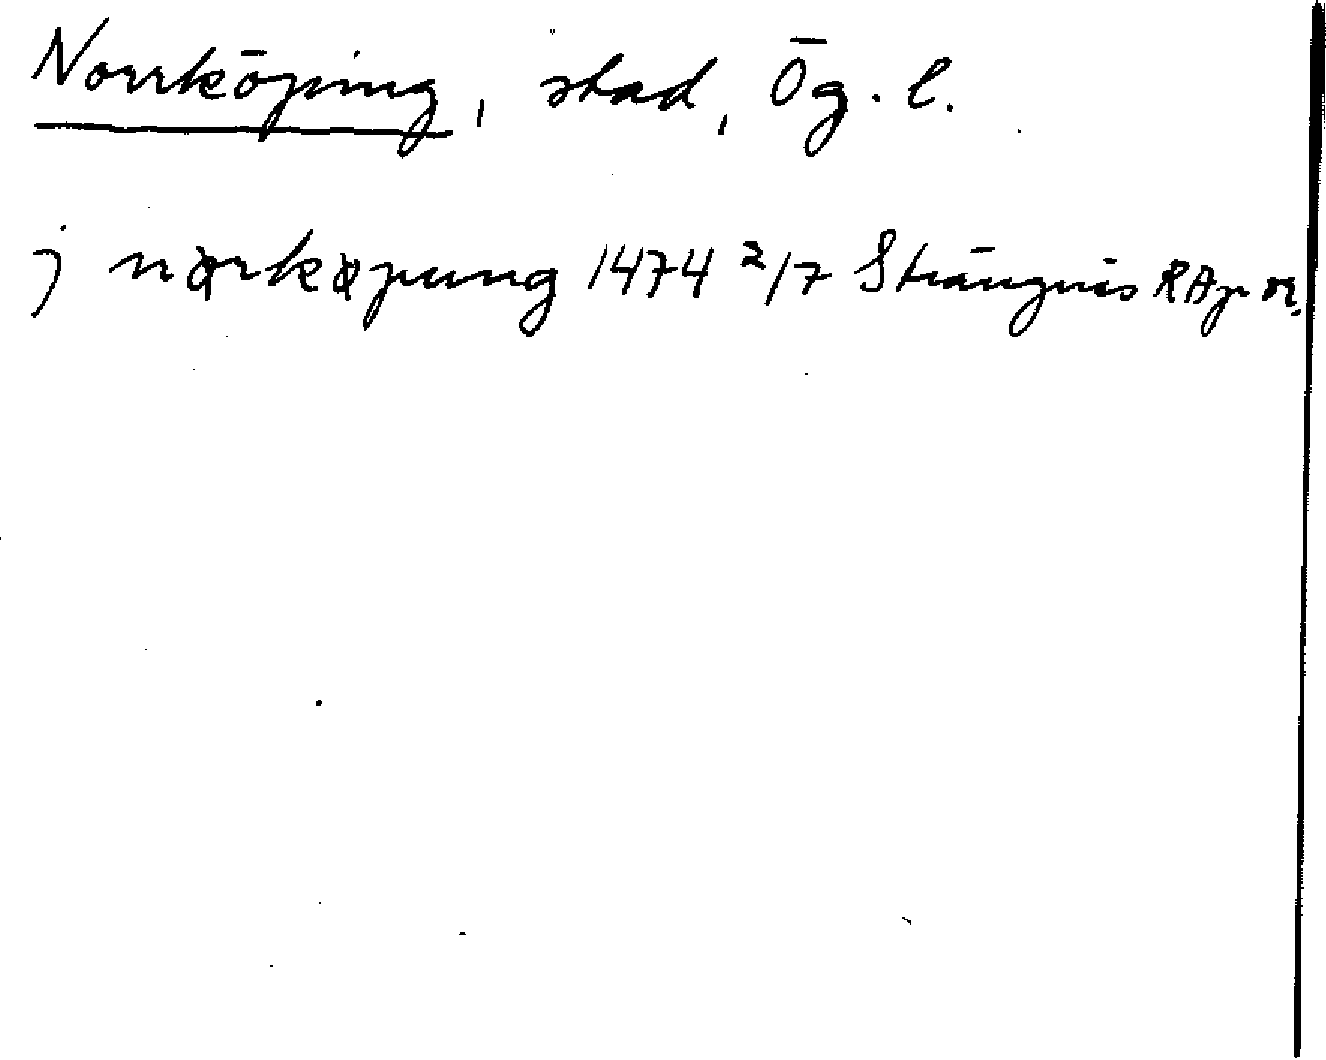 Norrköping, stad, Ög. l.
j nørkøpung 1474 2/7 Strängnäs RAp or.